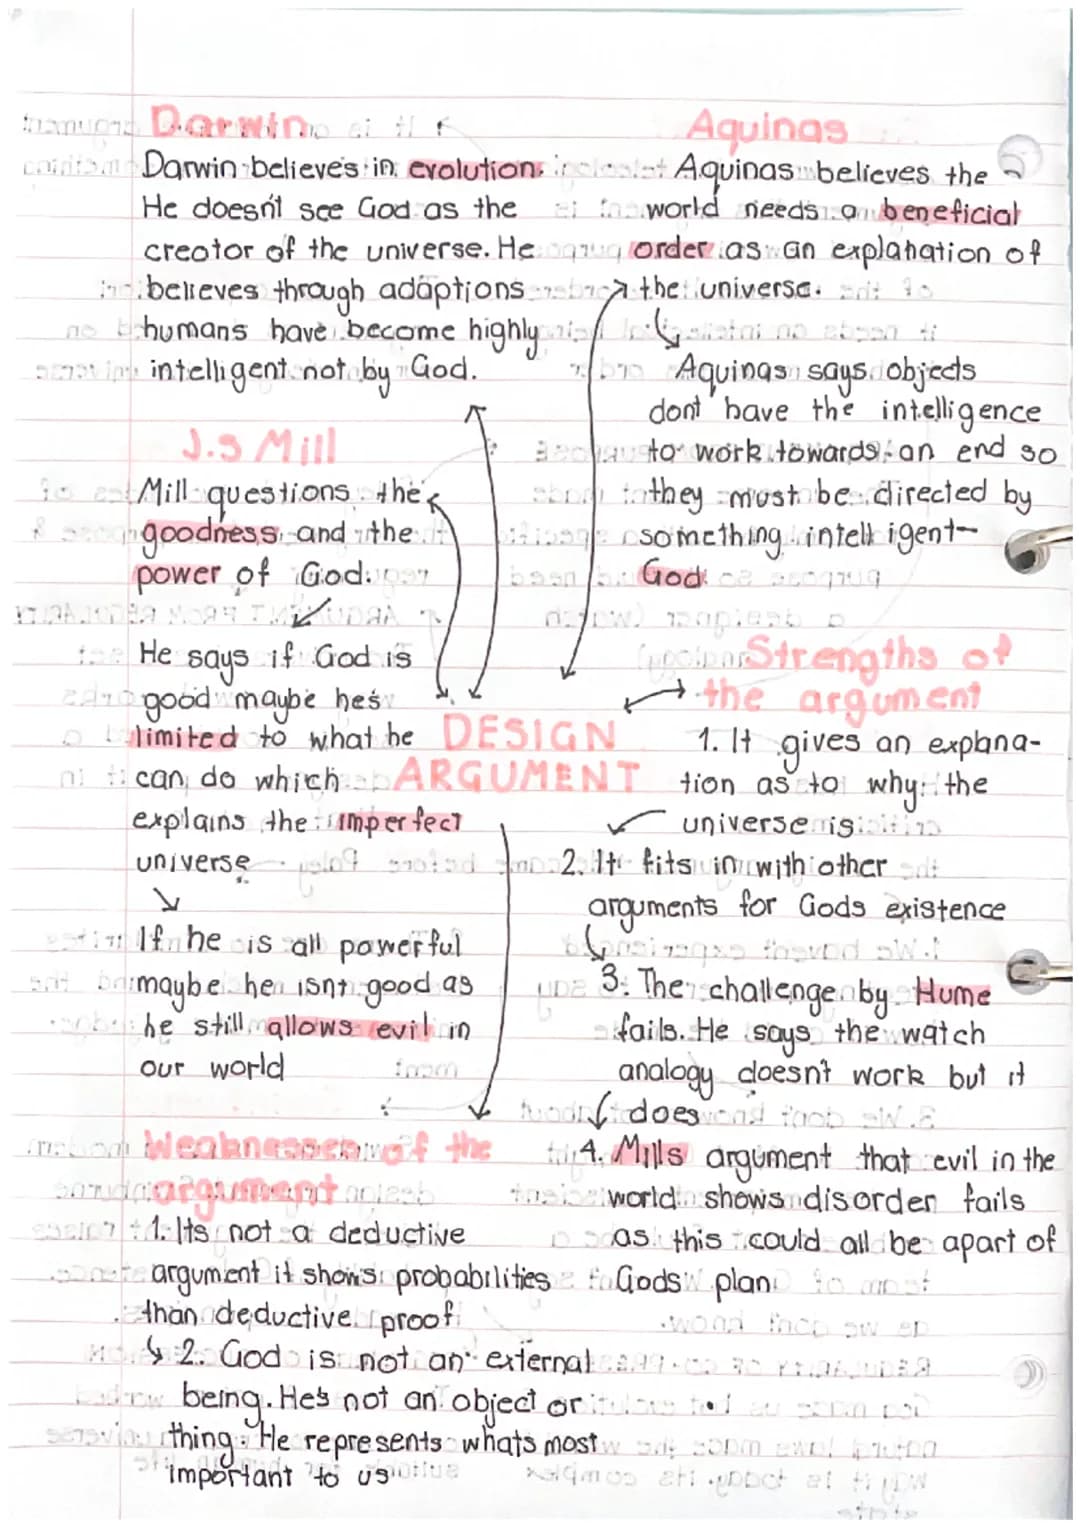 Darwin
Darwin believes in evolution.
He doesn't see God as the
creator of the universe. He
believes through adaptions
humans have become highly
intelligent not by God.
J.S Mill
Mill questions the
goodness and the
power of God.
He says if God is
good maybe he's
limited to what he
can do which
explains the imperfect
universe
If he is all powerful
maybe he isn't good as
he still allows evil in
our world
DESIGN
ARGUMENT
Weaknesses of the
argument
1. Its not a deductive
argument it shows probabilities
than deductive proof.
2. God is not an external
being. He's not an object or
thing. He represents whats most
important to us
Aquinas
Aquinas believes the
world needs a beneficial
order as an explanation of
the universe.
Aquinas says objects
dont have the intelligence
to work towards an end so
they must be directed by
something intelligent-
God
Strengths of
the argument
1. It gives an explana-
tion as to why the
universe is
2. It fits in with other
arguments for Gods existence
3. The challenge by Hume
fails. He says the watch
analogy doesn't work but it
does
4. Mills argument that evil in the
world shows disorder fails
as this could all be apart of
Gods plan